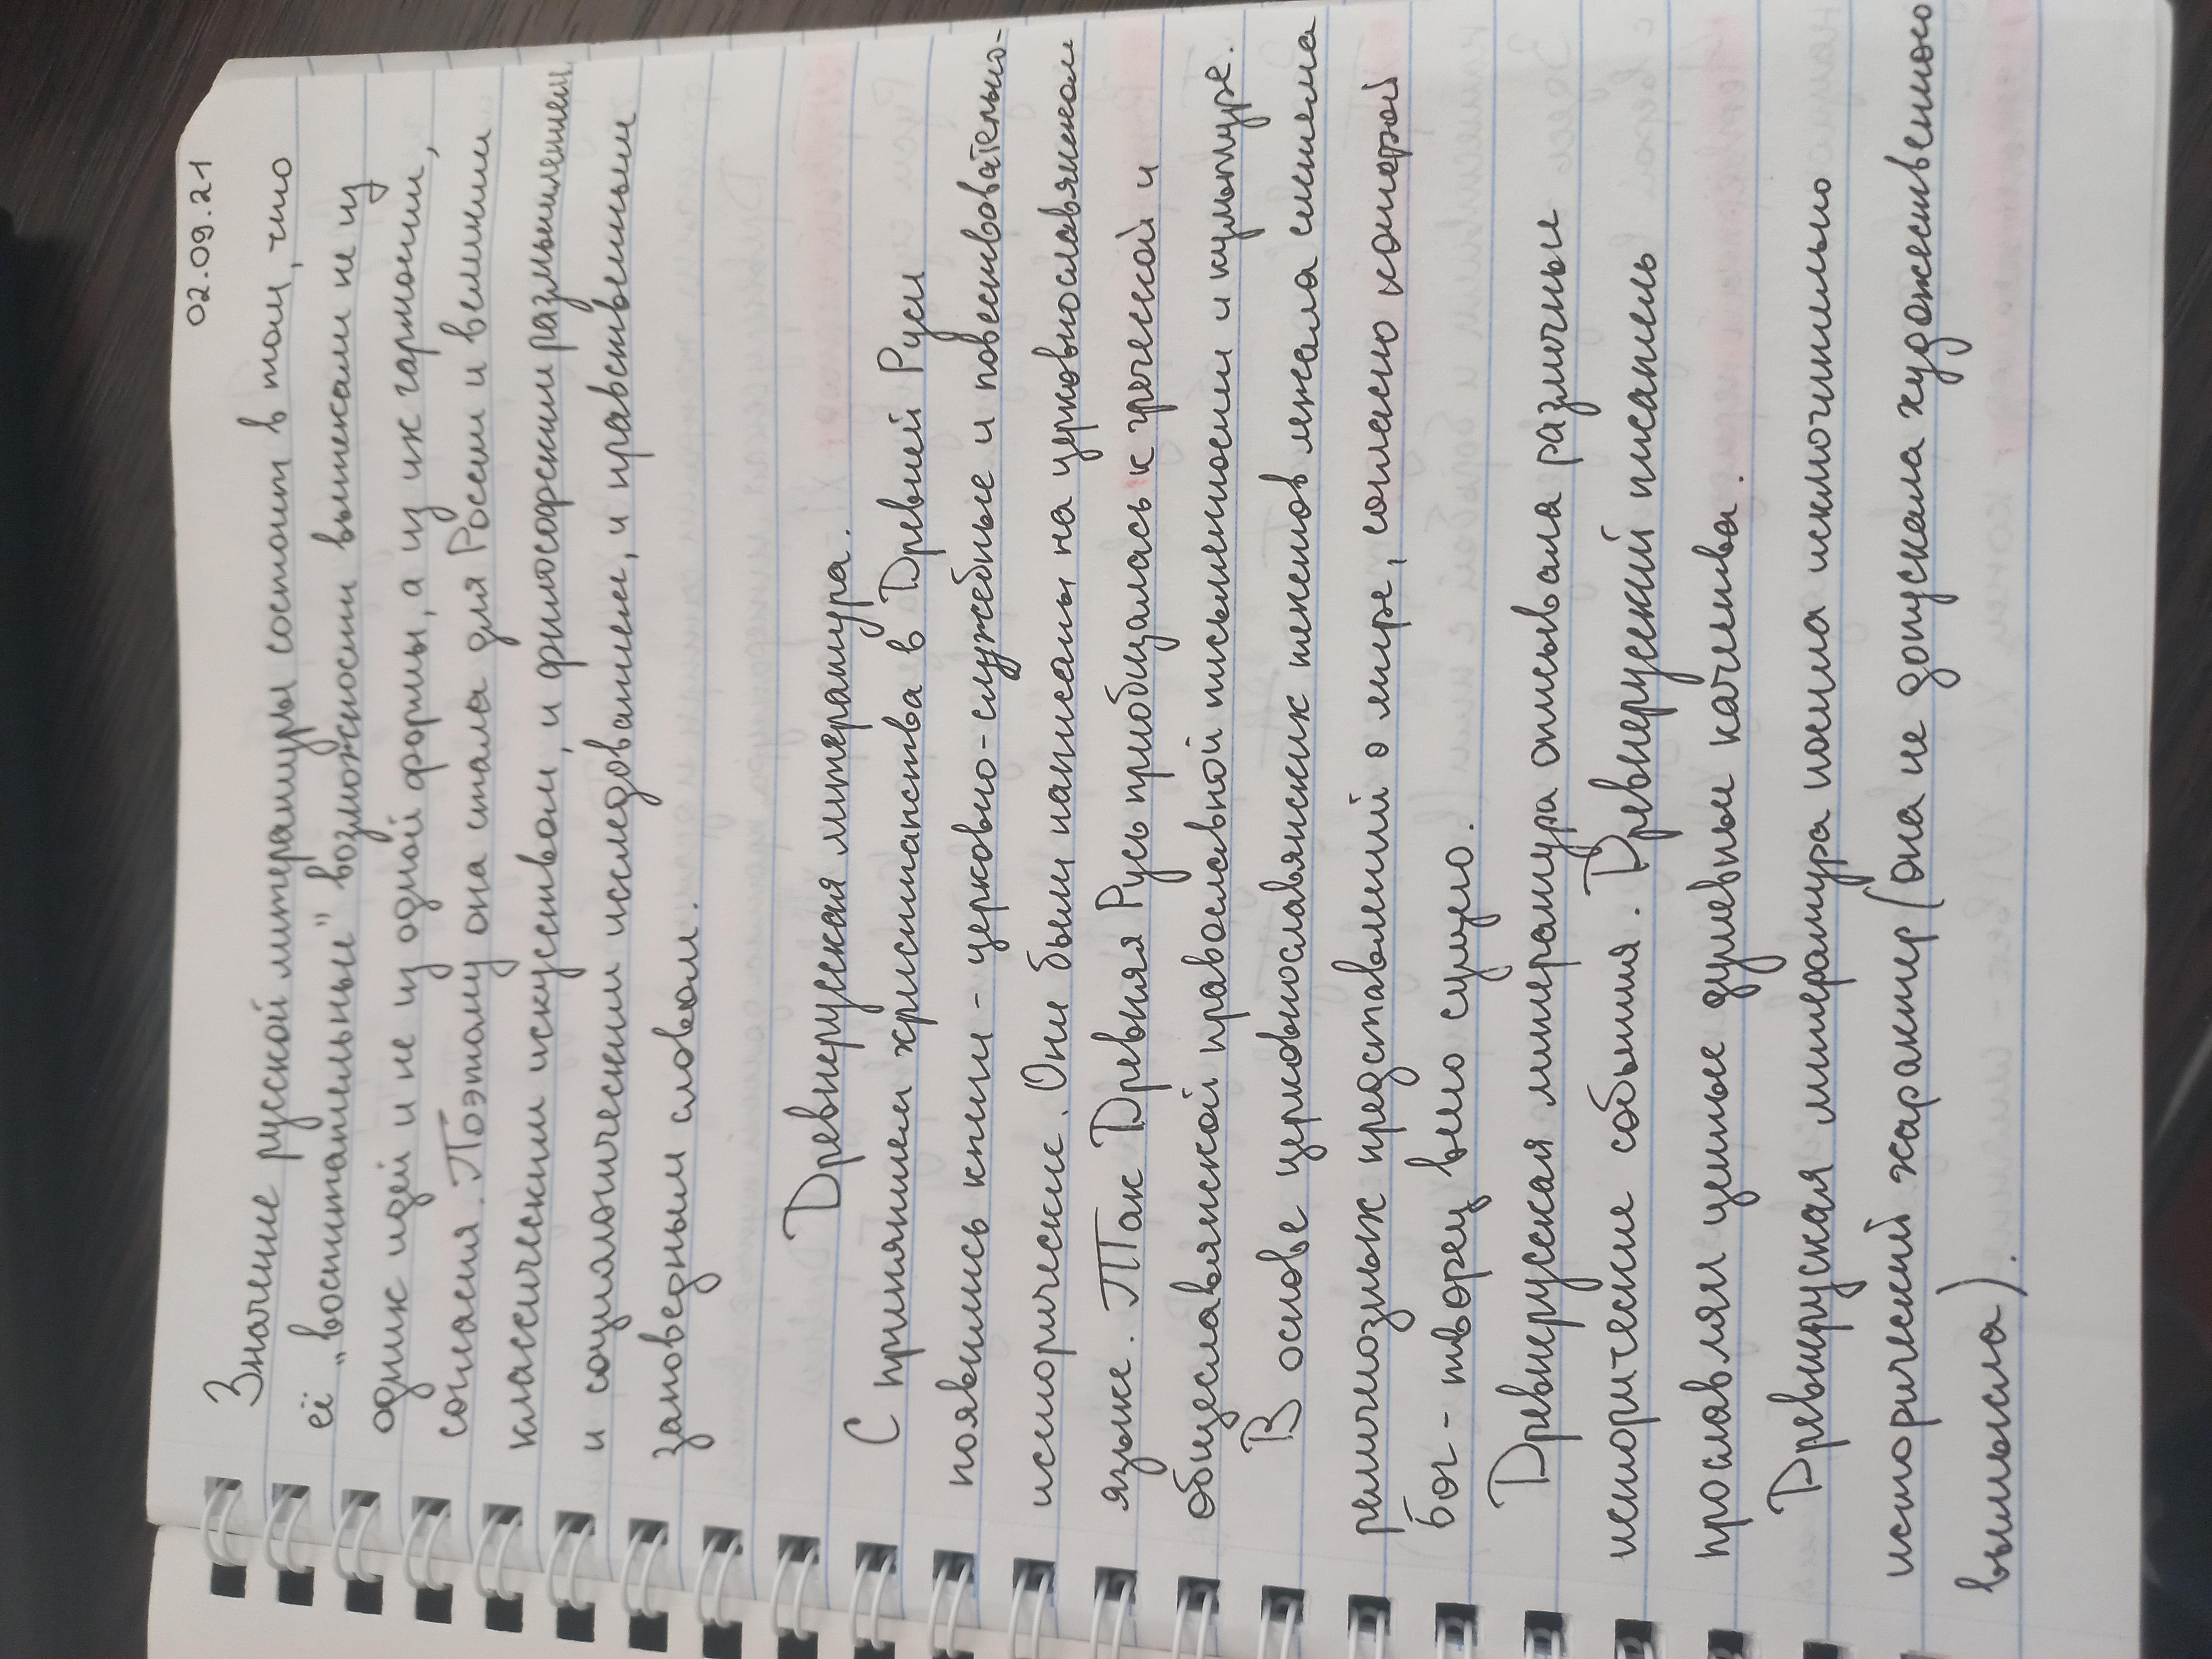 02.09.21
Значение русской литературы состоит в том, что
её „воспитательные" возможности вытекали не из
одних идей и не из одной формы, а из их гармонии,
согласия. Поэтому она стала для России и великим
классическим искусством, и философским размышлением,
и социологическим исследованием, и нравственным
заповедным словом.
Древнерусская литература.
С принятием христианства в Древней Руси
появились книги - церковно-служебные и повествовательно-
исторические. Они были написаны на церковнославянском
языке. Так Древняя Русь приобщалась к греческой и
общеславянской православной письменности и культуре.
В основе церковнославянских текстов лежала система
религиозных представлений о мире, согласно которой
бог - творец всего сущего.
Древнерусская литература описывала различные
исторические события. Древнерусский писатель
прославлял ценные душевные качества.
Древнерусская литература носила исключительно
исторический характер (она не допускала художественного
вымысла).